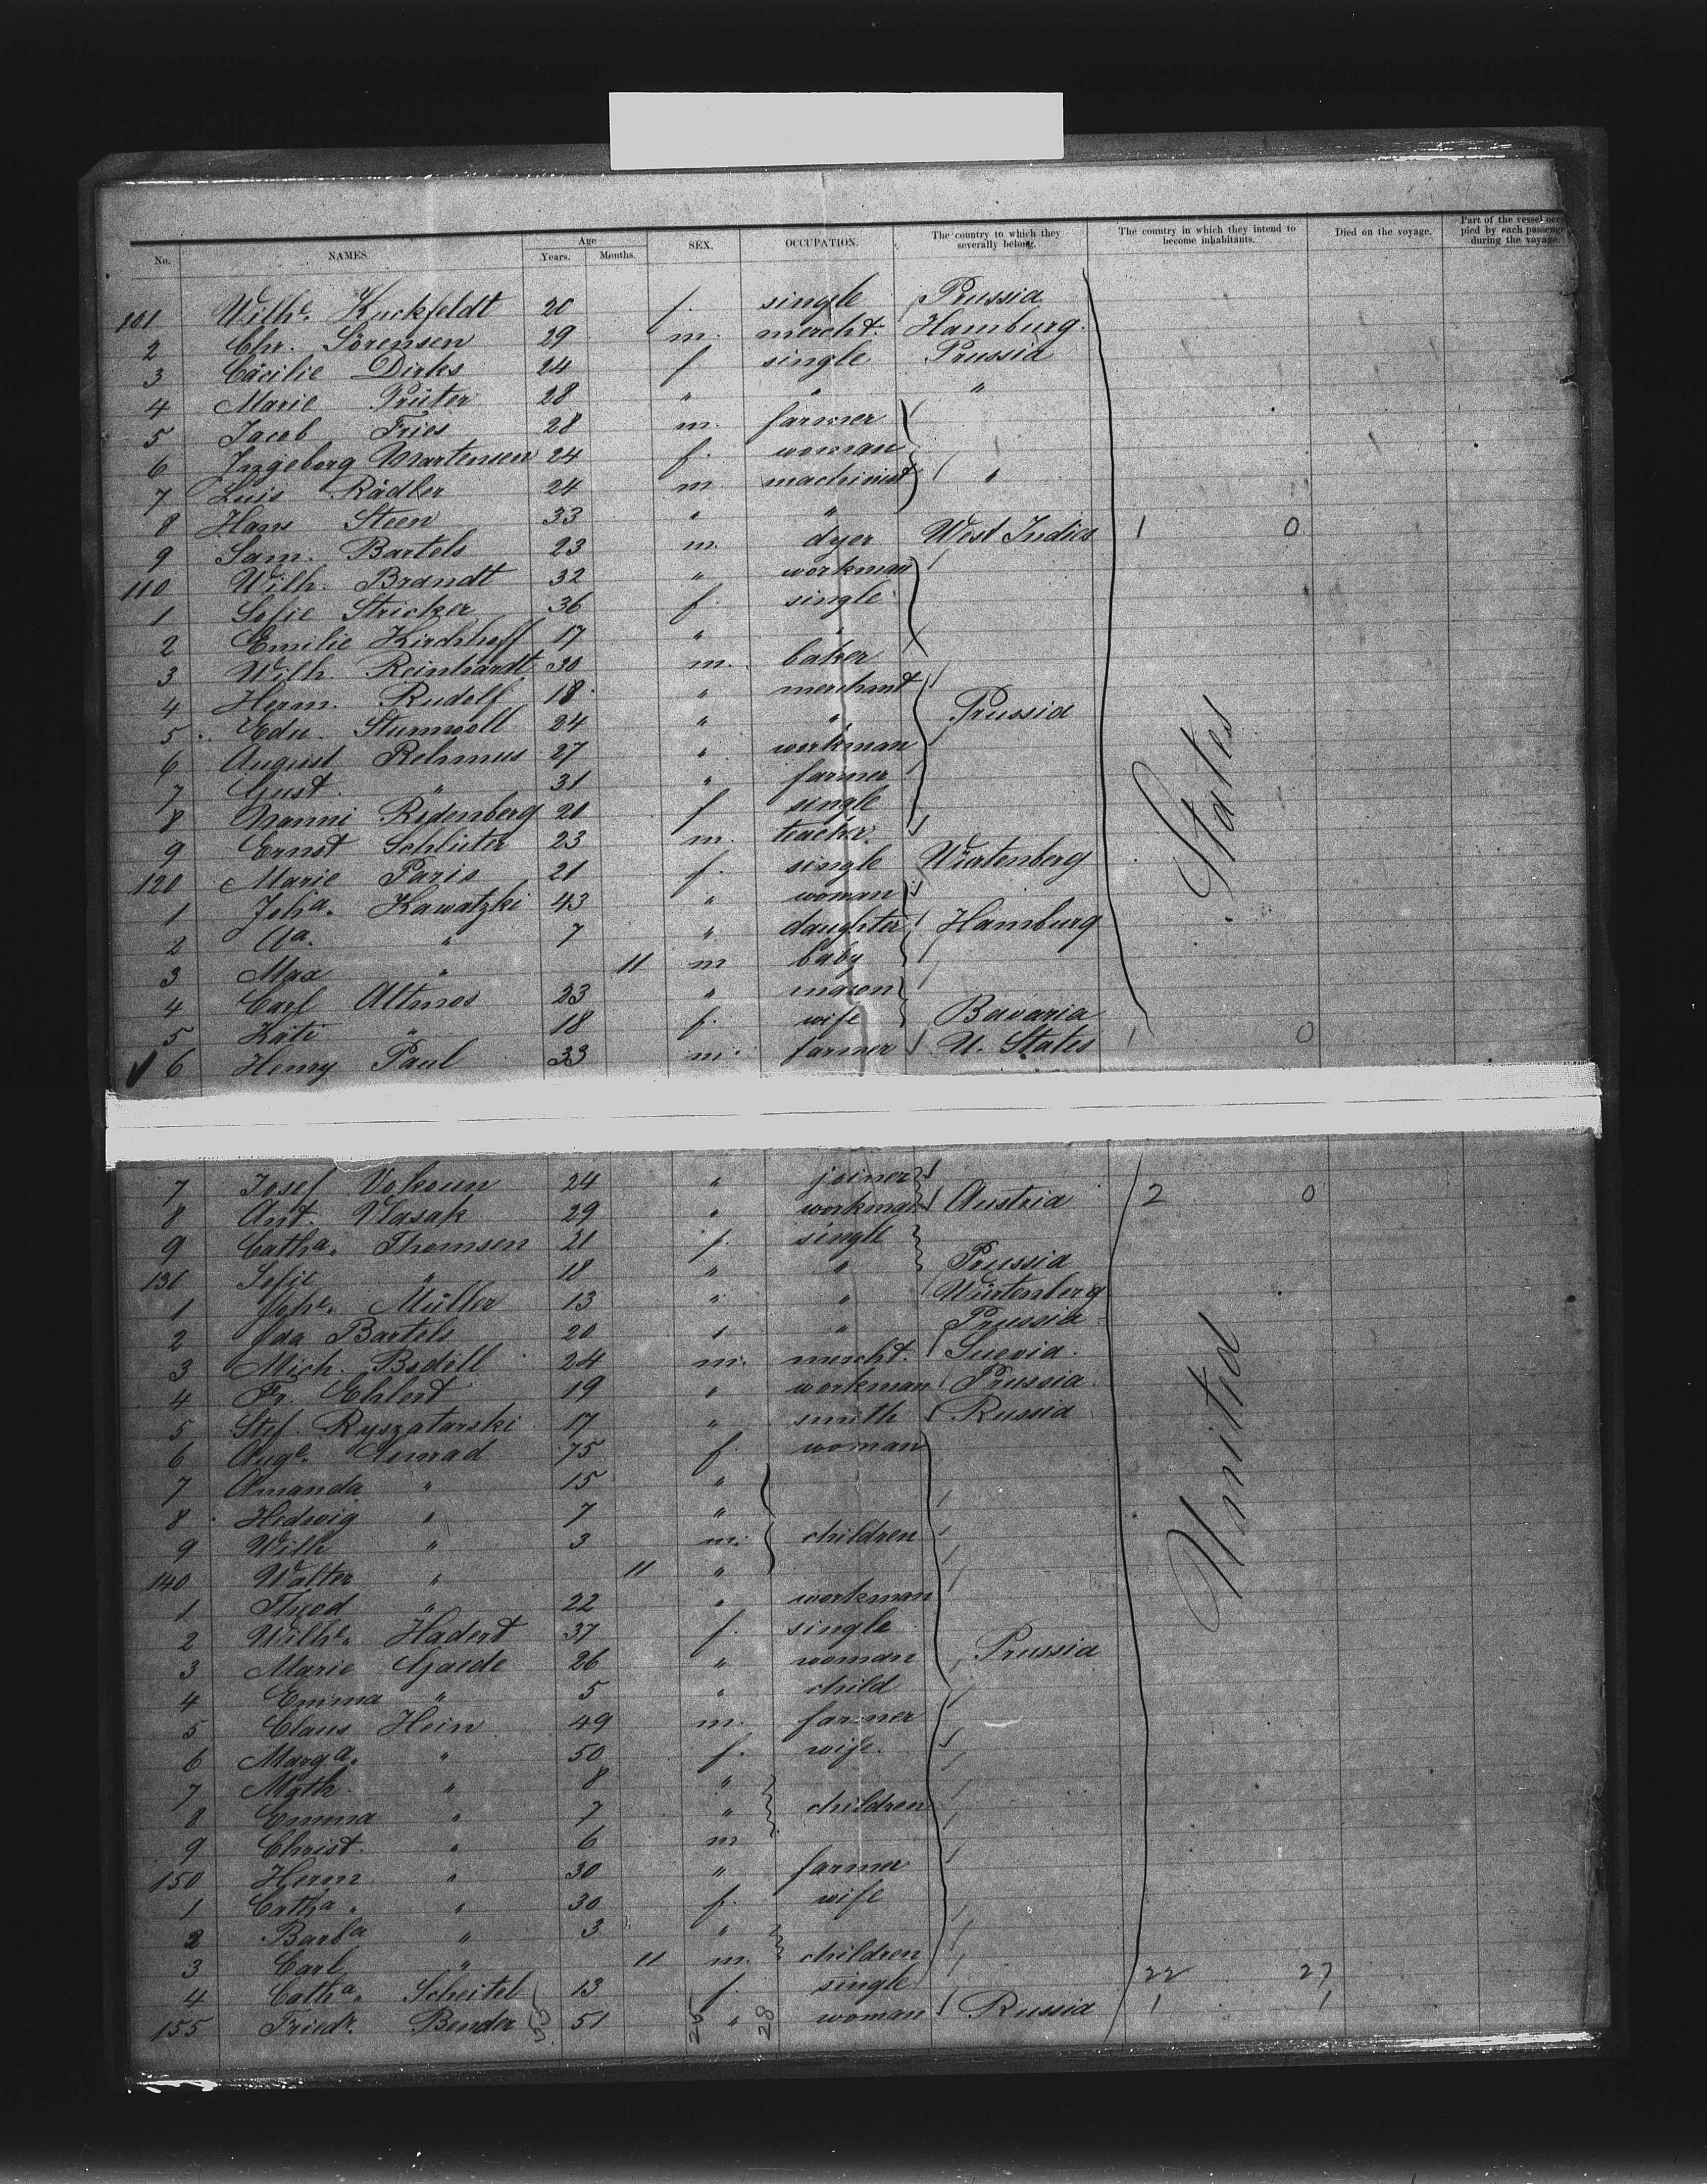 No. NAMES. Age Years. Months. SEX. OCCUPATION. The country to which they severally belong. The country in which they intend to become inhabitants. Died on the voyage. Part of the vessel occupied by each passenger during the voyage.
101 Wilhe. Kuckfeldt 20 f. single Prussia
2 Chr. Sörensen 29 m. mercht. Hamburg.
3 Cäcilie Dirks 24 f single Prussia
4 Marie Prüter 28 " " "
5 Jacob Fries 28 m. farmer
6 Ingeborg Martensen 24 f. woman
7 Luis Rädler 24 m machinist "
8 Hans Steen 33 " "
9 Sam. Bartels 23 m. dyer West Indies 1 0
110 Wilh. Brandt 32 " workman
1 Sofie Stricker 36 f. single
2 Emilie Kirchhoff 17 " "
3 Wilh. Reinhardt 30 m. baker
4 Herm. Rudolf 18 " merchant
5 Edu. Sturmvoll 24 " " Prussia
6 August Rehmus 27 " workman
7 Gust. " 31 " farmer
8 Nanni Rodenberg 21 f single
9 Ernst Schlüter 23 m. teacher
120 Marie Paris 21 f. single Würtenberg
1 Joha. Kawatzki 43 " woman
2 Aa. " 7 " daughter Hamburg
3 Max " 11 m baby
4 Carl Altmos 23 "
5 Käti " 18 f. wife Bavaria
6 Henry Paul 33 m. farmer U. States 1 0
States
7 Josef Vokoun 24 " joiner
8 Ant. Vlasak 29 " workman Austria 2 0
9 Catha. Thomsen 21 f. single
131 Sofie " 18 " " Prussia
1 Johe. Müller 13 " " Würtenberg
2 Ida Bartels 20 " " Prussia
3 Mich. Bodell 24 m. mercht. Suevia.
4 Fr. Ehlert 19 " workman Prussia.
5 Stef. Ryszatarski 17 " smith Russia
6 Auge. 75 f. woman
7 Amanda " 15 "
8 Hedwig " 7 "
9 Wilh " 3 m. children
140 Walter " 11 "
1 Theod " 22 " workman
2 Wilhe. Hadert 37 f. single
3 Marie Gaede 26 " woman Prussia
4 Emma " 5 " child
5 Claus Hein 49 m. farmer
6 Marga. " 50 f. wife.
7 Math. " 8 "
8 Emma " 7 " children
9 Christ. " 6 m
150 Herm " 30 " farmer
1 Catha. " 30 f. wife
2 Barba " 3 "
3 Carl " 11 m. children
4 Catha. Scheitel 13 f. single 22 27
155 Friedr. Bender 51 " woman Russia 1 1
United
55 26 28